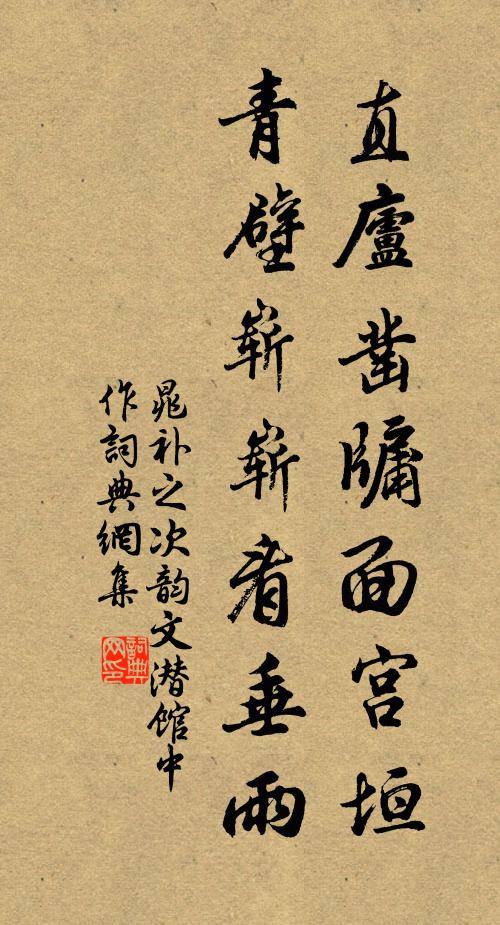 直廬鑿牖面宮垣
青壁嶄嶄看垂雨
晁补之次韵文潜馆中
作詞典網集
詞典网印